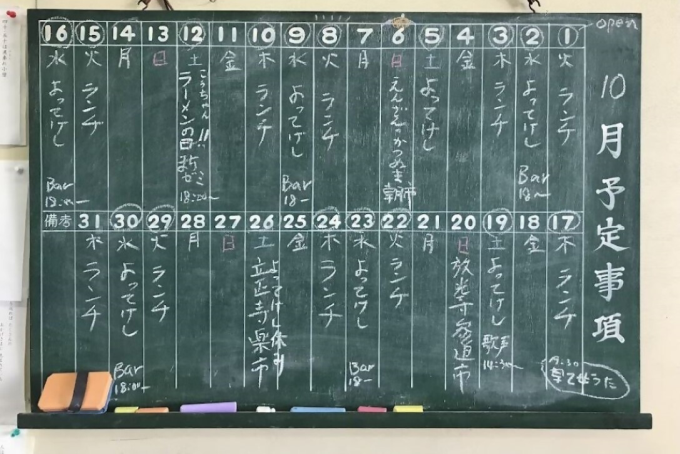 open
10月予定事項
1 火 ランチ
2 水 よってけし Bar 18:00〜
3 木 ランチ
4 金
5 土 よってけし
6 日 えんざんのかつぬま 朝市
7 月
8 火 ランチ
9 水 よってけし Bar 18:00〜
10 木 ランチ
11 金
12 土 こうちゃん!! ラーメンの日
13 日
14 月
15 火 ランチ
16 水 よってけし Bar 18:00〜
17 木 ランチ
18 金
19 土 よってけし 歌声 14:30〜
20 日 放光寺参道市
21 月
22 火 ランチ
23 水 よってけし Bar 18〜
24 木 ランチ
25 金
26 土 よってけし休み 立正寺楽市
27 日
28 月
29 火 ランチ
30 水 よってけし Bar 18:00〜
31 木 ランチ
備考